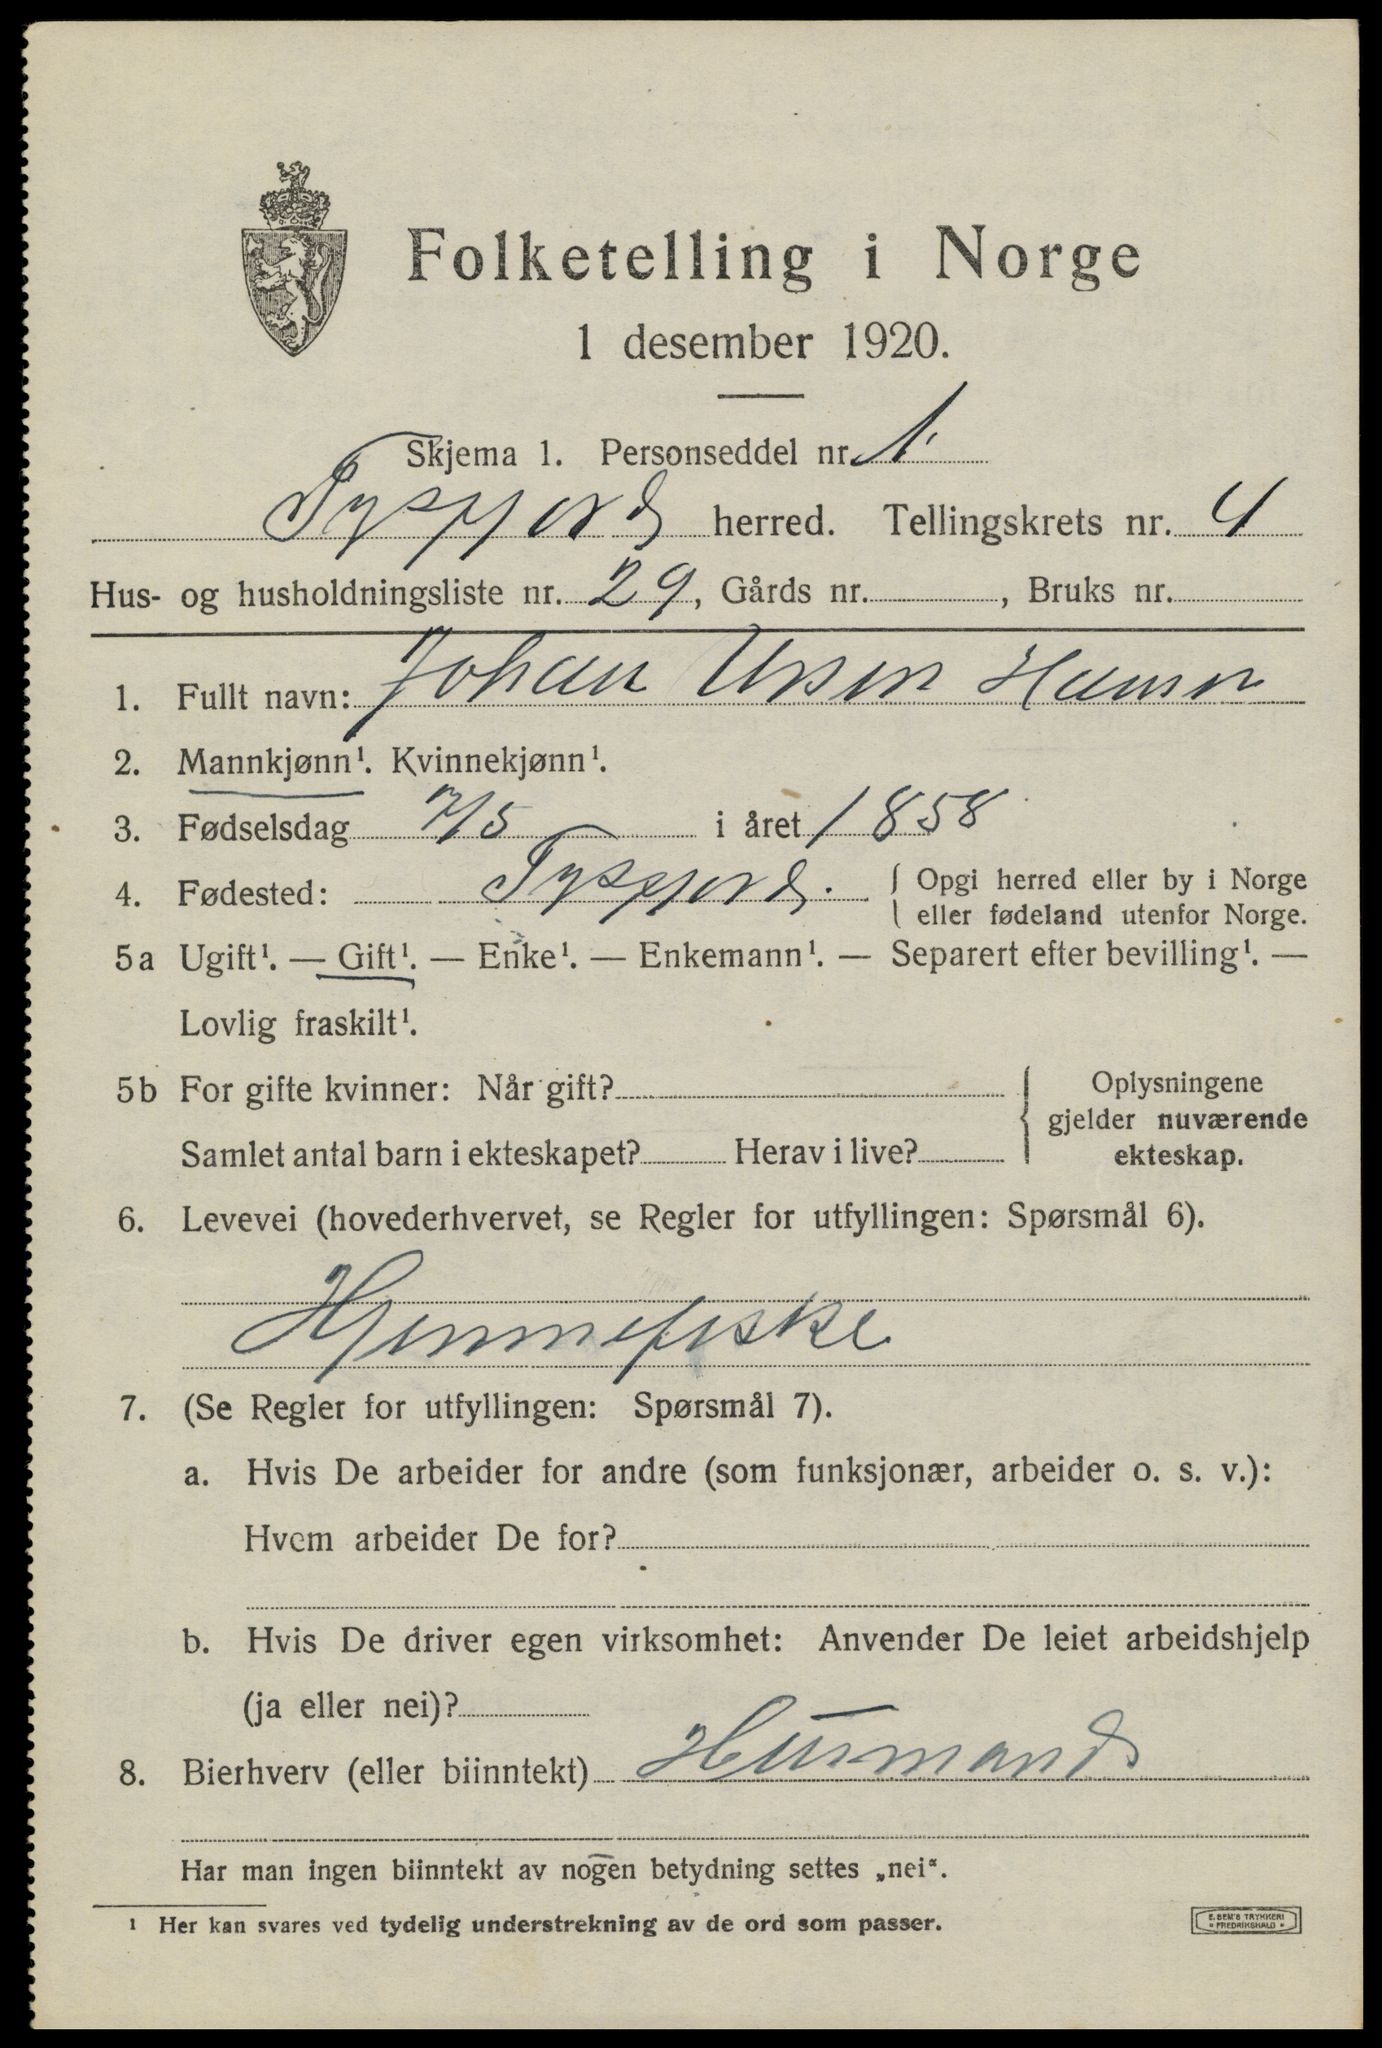 Folketelling i Norge
1 desember 1920.
Skjema 1. Personseddel nr. 1.
Tysfjord herred. Tellingskrets nr. 4
Hus- og husholdningsliste nr. 29, Gårds nr. , Bruks nr.
1. Fullt navn: Johan Ursin Hansen
2. Mannkjønn¹. Kvinnekjønn¹.
3. Fødselsdag 7/5 i året 1858
4. Fødested: Tysfjord. { Opgi herred eller by i Norge
eller fødeland utenfor Norge.
5a Ugift¹. — Gift¹. — Enke¹. — Enkemann¹. — Separert efter bevilling¹. —
Lovlig fraskilt¹.
5b For gifte kvinner: Når gift? { Oplysningene
gjelder nuværende
Samlet antal barn i ekteskapet? Herav i live? ekteskap.
6. Levevei (hovederhvervet, se Regler for utfyllingen: Spørsmål 6).
Hjemmefiske
7. (Se Regler for utfyllingen: Spørsmål 7).
a. Hvis De arbeider for andre (som funksjonær, arbeider o. s. v.):
Hvem arbeider De for?
b. Hvis De driver egen virksomhet: Anvender De leiet arbeidshjelp
(ja eller nei)?
8. Bierhverv (eller biinntekt) Husmand
Har man ingen biinntekt av nogen betydning settes „nei".
¹ Her kan svares ved tydelig understrekning av de ord som passer.
E. SEM'S TRYKKERI
* FREDRIKSHALD *